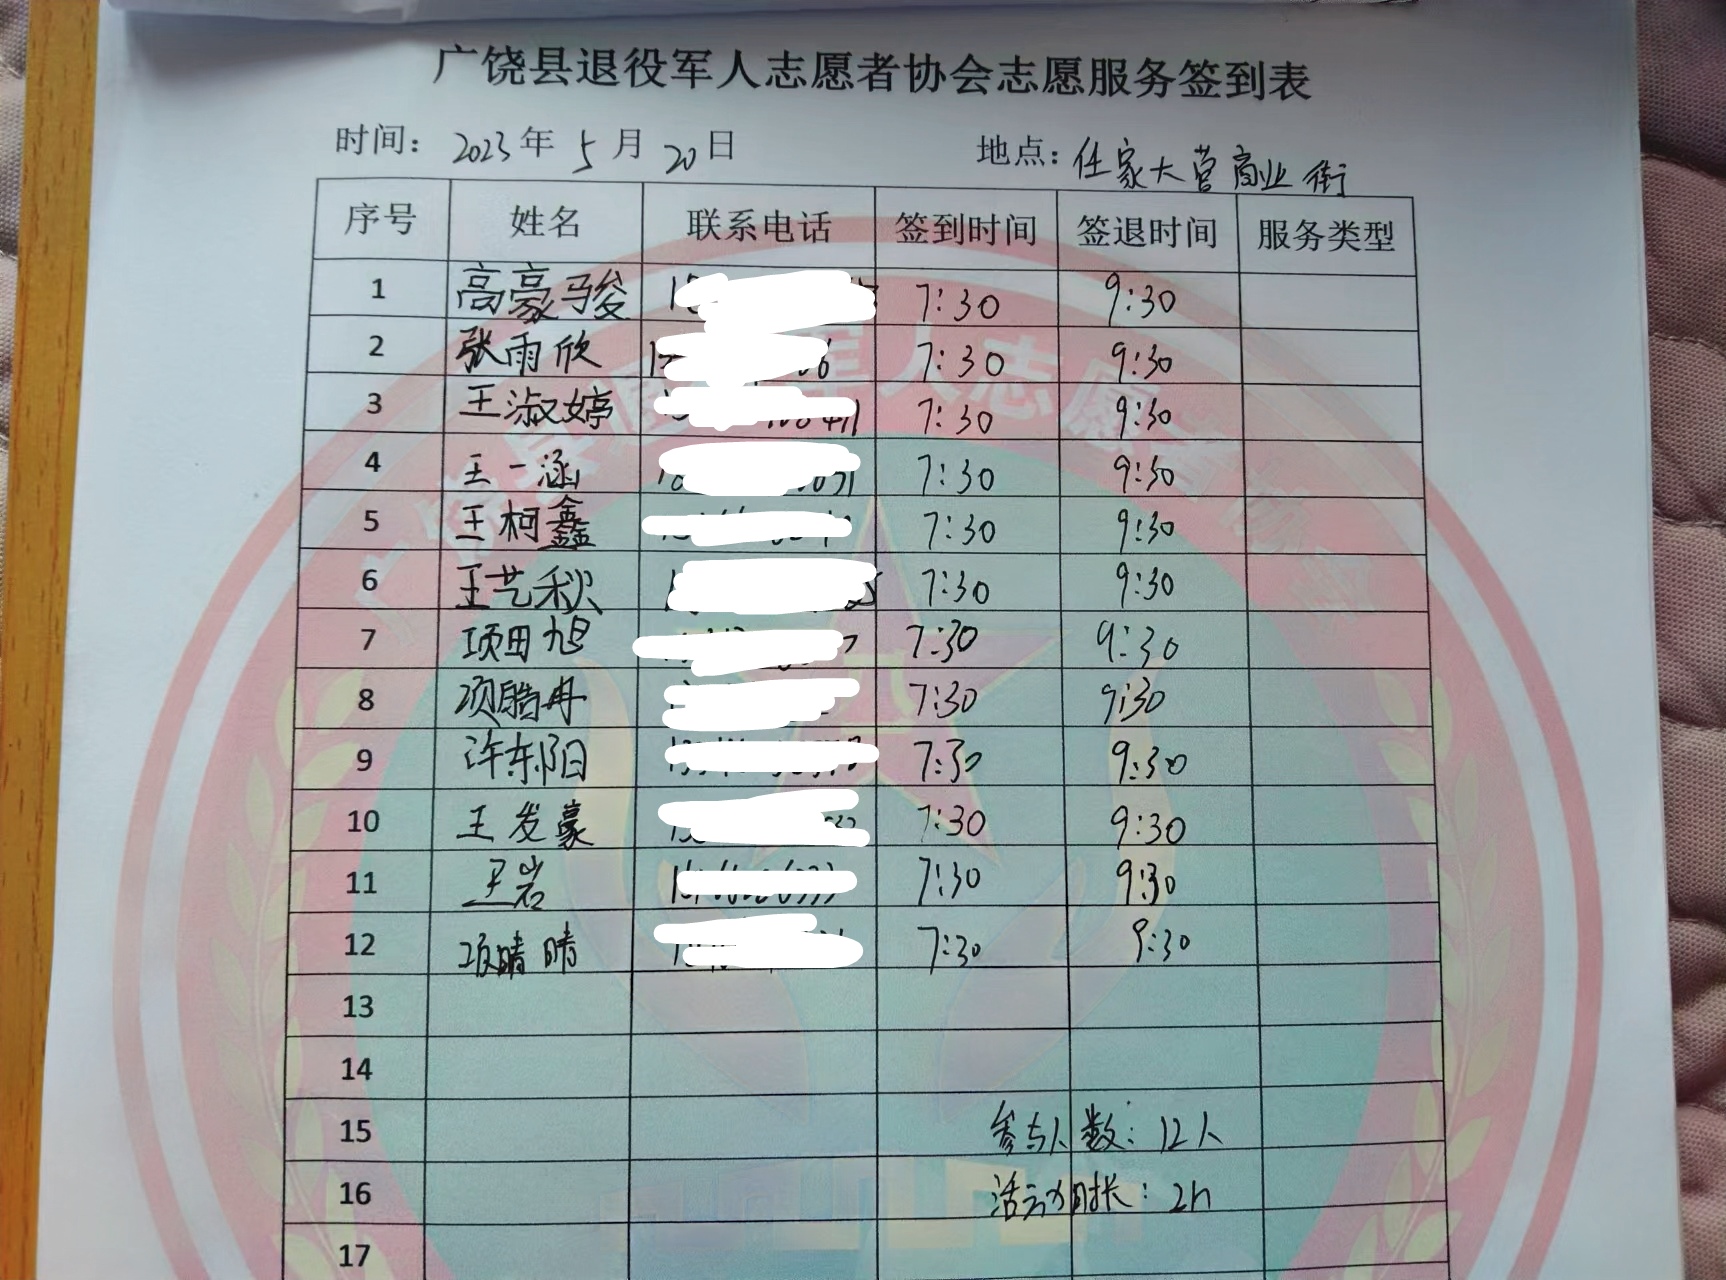 广饶县退役军人志愿者协会志愿服务签到表
时间：2023年5月20日 地点：任家大营商业街
序号 姓名 联系电话 签到时间 签退时间 服务类型
1 高豪骏 7:30 9:30
2 张雨欣 7:30 9:30
3 王淑婷 7:30 9:30
4 王一涵 7:30 9:30
5 王柯鑫 7:30 9:30
6 王艺秋 7:30 9:30
7 项田旭 7:30 9:30
8 项腊冉 7:30 9:30
9 许东阳 7:30 9:30
10 王发豪 7:30 9:30
11 王岩 7:30 9:30
12 项晴晴 7:30 9:30
13
14
15 参与人数：12人
16 活动时长：2h
17